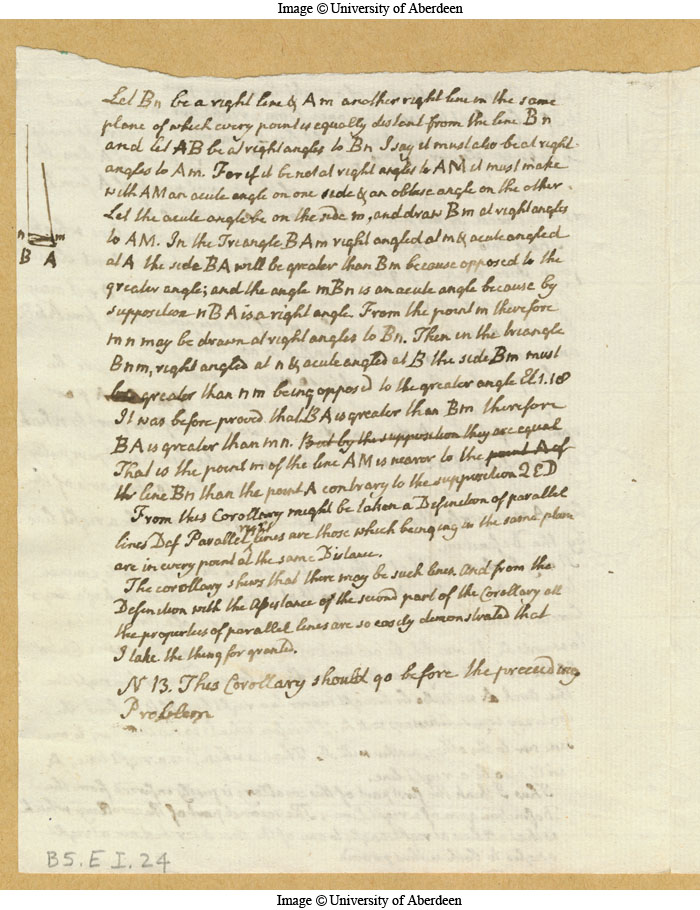 Image © University of Aberdeen
Let Bn be a right line & Am another right line in the same
plane of which every point is equally distant from the line Bn
and let AB be at right angles to Bn I say it must also be at right
angles to Am. For if it be not at right angles to AM it must make
with AM an acute angle on one side & an obtuse angle on the other.
Let the acute angle be on the side m, and draw Bm at right angles
to AM. In the Triangle BAm right angled at m & acute angled
at A the side BA will be greater than Bm because opposed to the
greater angle; and the angle mBn is an acute angle because by
supposition nBA is a right angle. From the point m therefore
mn may be drawn at right angles to Bn. Then in the triangle
Bnm, right angled at n & acute angled at B the side Bm must
be greater than nm being opposed to the greater angle El. 1. 18
It was before proved that BA is greater than Bm therefore
BA is greater than mn. But by the supposition they are equal
That is the point m of the line AM is nearer to the point A of
the line Bn than the point A contrary to the supposition QED
From this Corollary might be taken a Definition of parallel
lines Def Parallel right lines are those which being in the same plane
are in every point at the same Distance.
The corollary shews that there may be such lines. And from the
Definition with the Assistance of the second part of the Corollary all
the properties of parallel lines are so easily demonstrated that
I take the thing for granted.
N B. This Corollary should go before the preceeding
Problem
n m
B A
B5. E I. 24
Image © University of Aberdeen